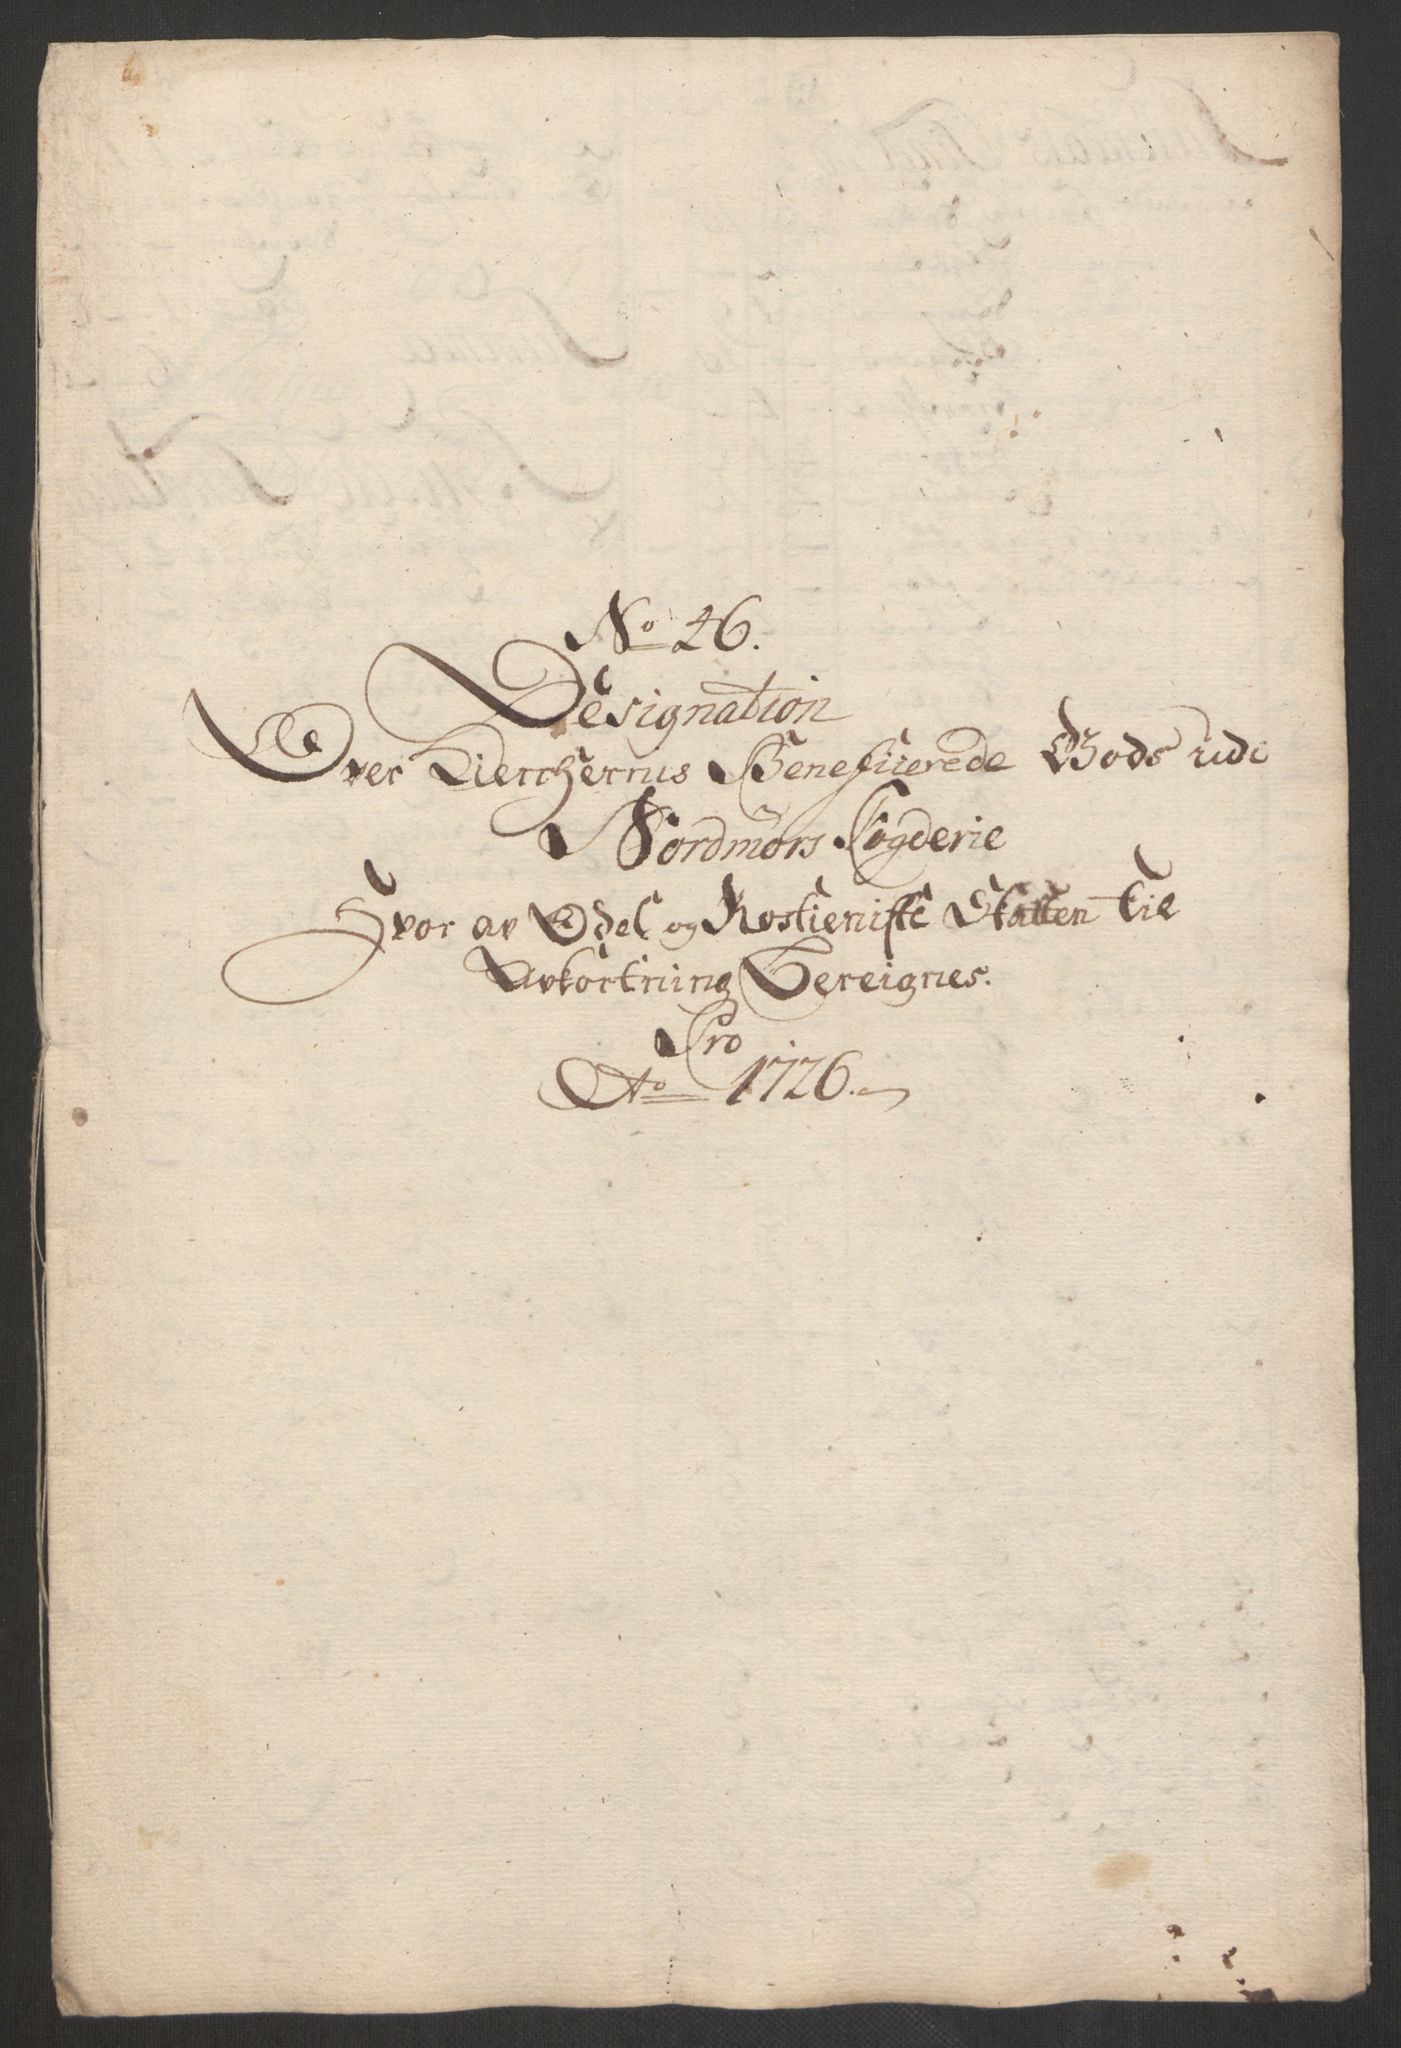 No 26.
Designation
Over Kierchernes Beneficerede Gods udi
Nordmørs Fogderie
Hvor av Odel og Rostieniste Skatten til
Avkortning Bereignes.
Pro
Ao 1726.